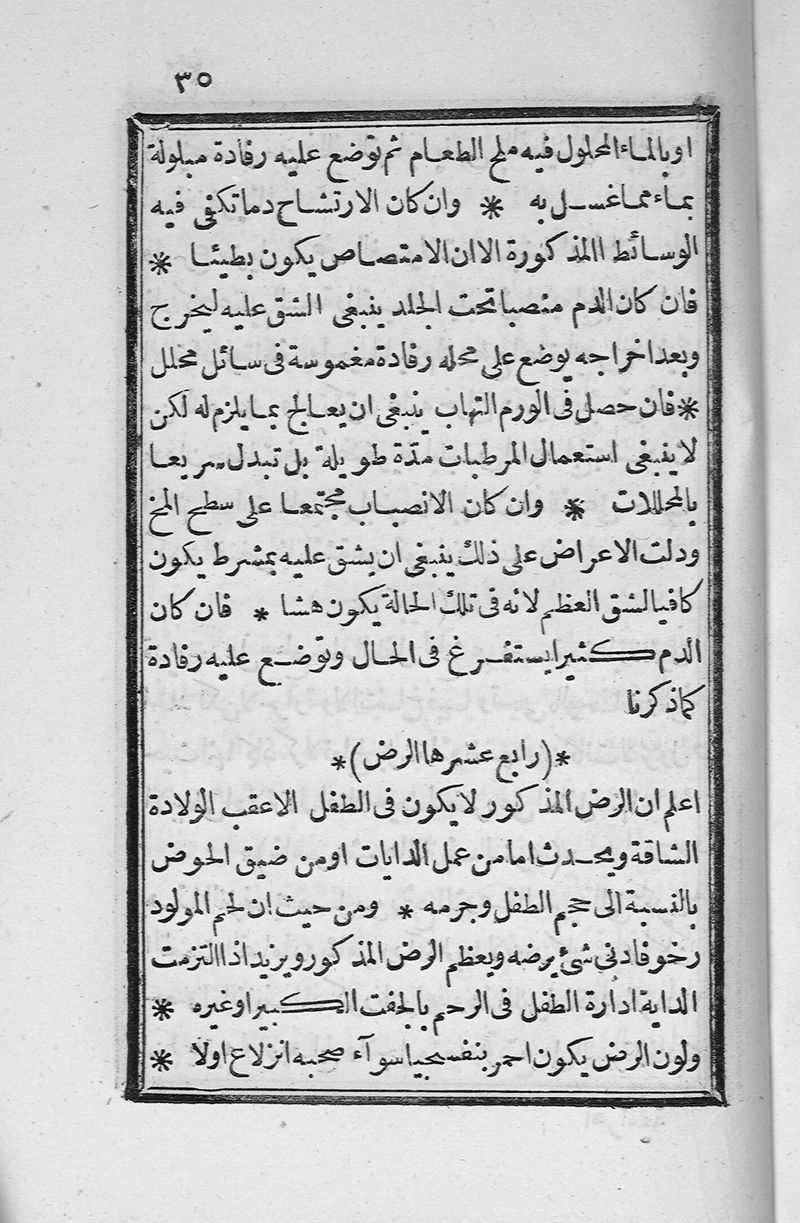 ٣٥
اوبالماء المحلول فيه ملح الطعام ثم توضع عليه رفادة مبلولة
بماء مما غسل به * وان كان الارتشاح دما تكفى فيه
الوسائط االمذكورة الا ان الامتصاص يكون بطيئا *
فان كان الدم منصبا تحت الجلد ينبغى الشق عليه ليخرج
وبعد اخراجه يوضع على محله رفادة مغموسة فى سائل محلل
* فان حصل فى الورم التهاب ينبغى ان يعالج بما يلزم له لكن
لا ينبغى استعمال المرطبات مدّة طويلة بل تبدل سريعا
بالمحللات * وان كان الانصباب مجتمعا على سطح المخ
ودلت الاعراض على ذلك ينبغى ان يشق عليه بمشرط يكون
كافيا لشق العظم لانه فى تلك الحالة يكون هشا * فان كان
الدم كثيرا يستفرغ فى الحال وتوضع عليه رفادة
كما ذكرنا
*(رابع عشرها الرض)*
اعلم ان الرض المذكور لا يكون فى الطفل الا عقب الولادة
الشاقة ويحدث اما من عمل الدايات او من ضيق الحوض
بالنسبة الى حجم الطفل وجرمه * ومن حيث ان لحم المولود
رخو فادنى شئ يرضه ويعظم الرض المذكور ويزيد اذا التزمت
الداية ادارة الطفل فى الرحم بالجفت الكبير او غيره *
ولون الرض يكون احمر بنفسجيا سوآء صحبه انزلاع اولا *